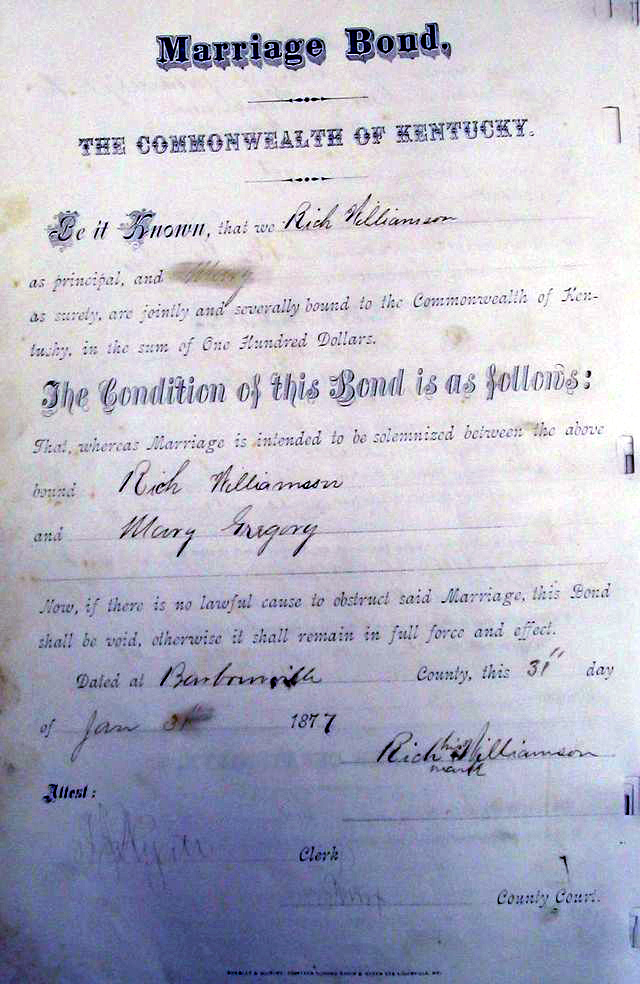 Marriage Bond,
THE COMMONWEALTH OF KENTUCKY.
Be it Known, that we Rich Williamson
as principal, and Mary
as surety, are jointly and severally bound to the Commonwealth of Ken-
tucky, in the sum of One Hundred Dollars.
The Condition of this Bond is as follows:
That, whereas Marriage is intended to be solemnized between the above
bound Rich Williamson
and Mary Gregory
Now, if there is no lawful cause to obstruct said Marriage, this Bond
shall be void, otherwise it shall remain in full force and effect.
Dated at Barbourville County, this 31" day
of Jan 31st 1877
Rich his Williamson
mark
Attest:
Clerk
County Court.